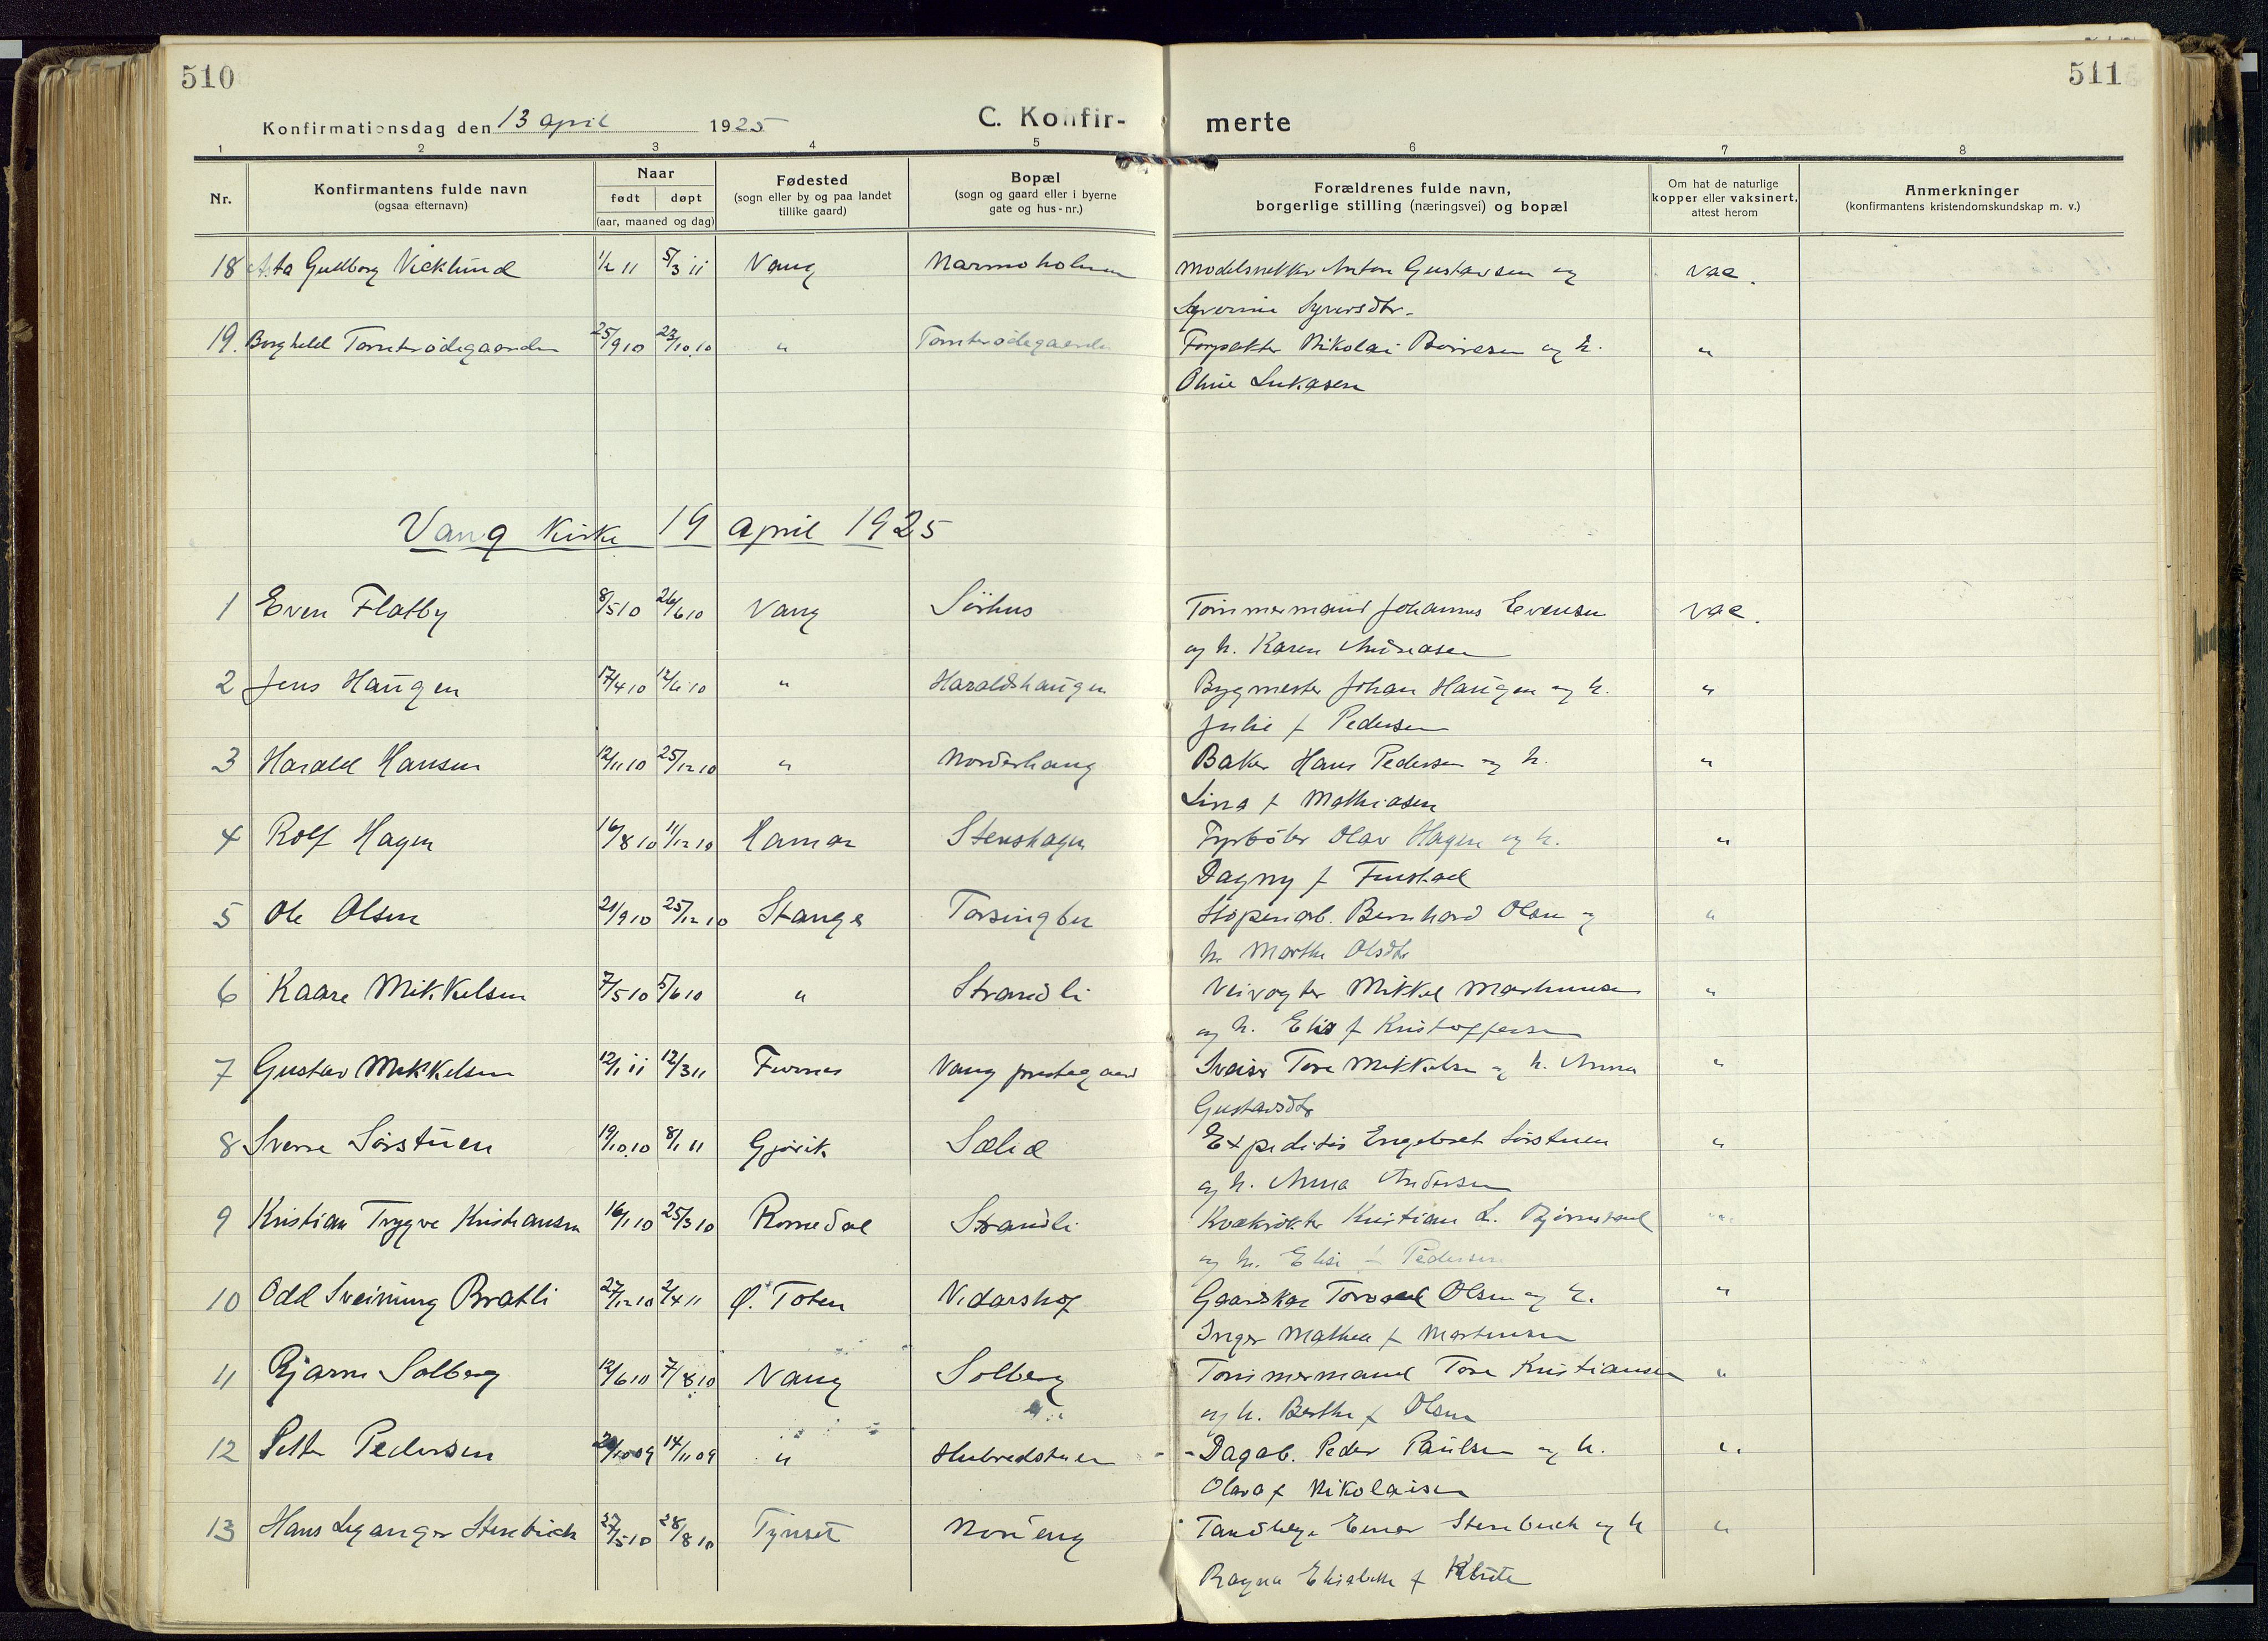 510
511
Konfirmationsdag den 13 april 1925
C. Konfir-
merte
1 2 3 4 5 6 7 8
Nr.
Konfirmantens fulde navn
(ogsaa efternavn)
Naar
født døpt
(aar, maaned og dag)
Fødested
(sogn eller by og paa landet
tillike gaard)
Bopæl
(sogn og gaard eller i byerne
gate og hus-nr.)
Forældrenes fulde navn,
borgerlige stilling (næringsvei) og bopæl
Om hat de naturlige
kopper eller vaksinert,
attest herom
Anmerkninger
(konfirmantens kristendomskundskap m. v.)
18 Asta Gudborg Vicklund 1/2 11 5/3 11 Vang Marmoholmen Modelsnekker Anton Gustavsen og vac.
Syverine Syversdtr.
19. Borghild Tomterødegaarden 25/9 10 23/10 10 " Tomterødegaarden Forpakter Nikolai Børresen og h. "
Oline Lukasen
Vang Kirke 19 april 1925
1 Even Flatby 8/5 10 26/6 10 Vang Sörhus Tömmermand Johannes Evensen vac.
og h. Karen Andreasen
2 Jens Haugen 17/4 10 12/6 10 " Haraldshaugen Bygmester Johan Haugen og h. "
Julie f Pedersen
3 Harald Hansen 12/11 10 25/12 10 " Norderhaug Baker Hans Pedersen og h. "
Lina f Mathiasen
4 Rolf Hagen 16/8 10 11/12 10 Hamar Stenshagen Fyrböter Olav Hagen og h. "
Dagny f Finstad
5 Ole Olsen 21/9 10 25/12 10 Stange Torsingben Stöperiarb. Bernhard Olsen og "
h. Marthe Olsdtr
6 Kaare Mikkelsen 7/5 10 5/6 10 " Strandli Veivogter Mikkel Marthinsen "
og h. Elise f Kristoffersen
7 Gustav Mikkelsen 12/1 11 12/3 11 Furnes Vang prestegaard Sveiser Tore Mikkelsen og h. Anna "
Gustavsdtr
8 Sverre Sörstuen 19/10 10 8/1 11 Gjövik Sælid Expeditör Engebret Sörstuen "
og h. Anna Andersen
9 Kristian Trygve Kristiansen 16/1 10 25/3 10 Romedal Strandli Kvækrökter Kristian L. Björnstad "
og h. Elise f Pedersen
10 Odd Sveinung Bratli 27/12 10 2/4 11 Ø. Toten Vidarshof Gaardskar Torvald Olsen og h. "
Inger Mathea f Martinsen
11 Bjarne Solberg 12/6 10 7/8 10 Vang Solberg Tömmermand Tore Kristiansen "
og h. Berthe f Olsen
12 Petter Pedersen 20/10 09 14/11 09 " Hubredstuen Dagab. Peder Paulsen og h. "
Olava f Nikolaisen
13 Hans Leganger Stenbuch 27/5 10 28/8 10 Tynset Noreng Tandlæge Einar Stenbuch og h "
Ragna Elisabeth f